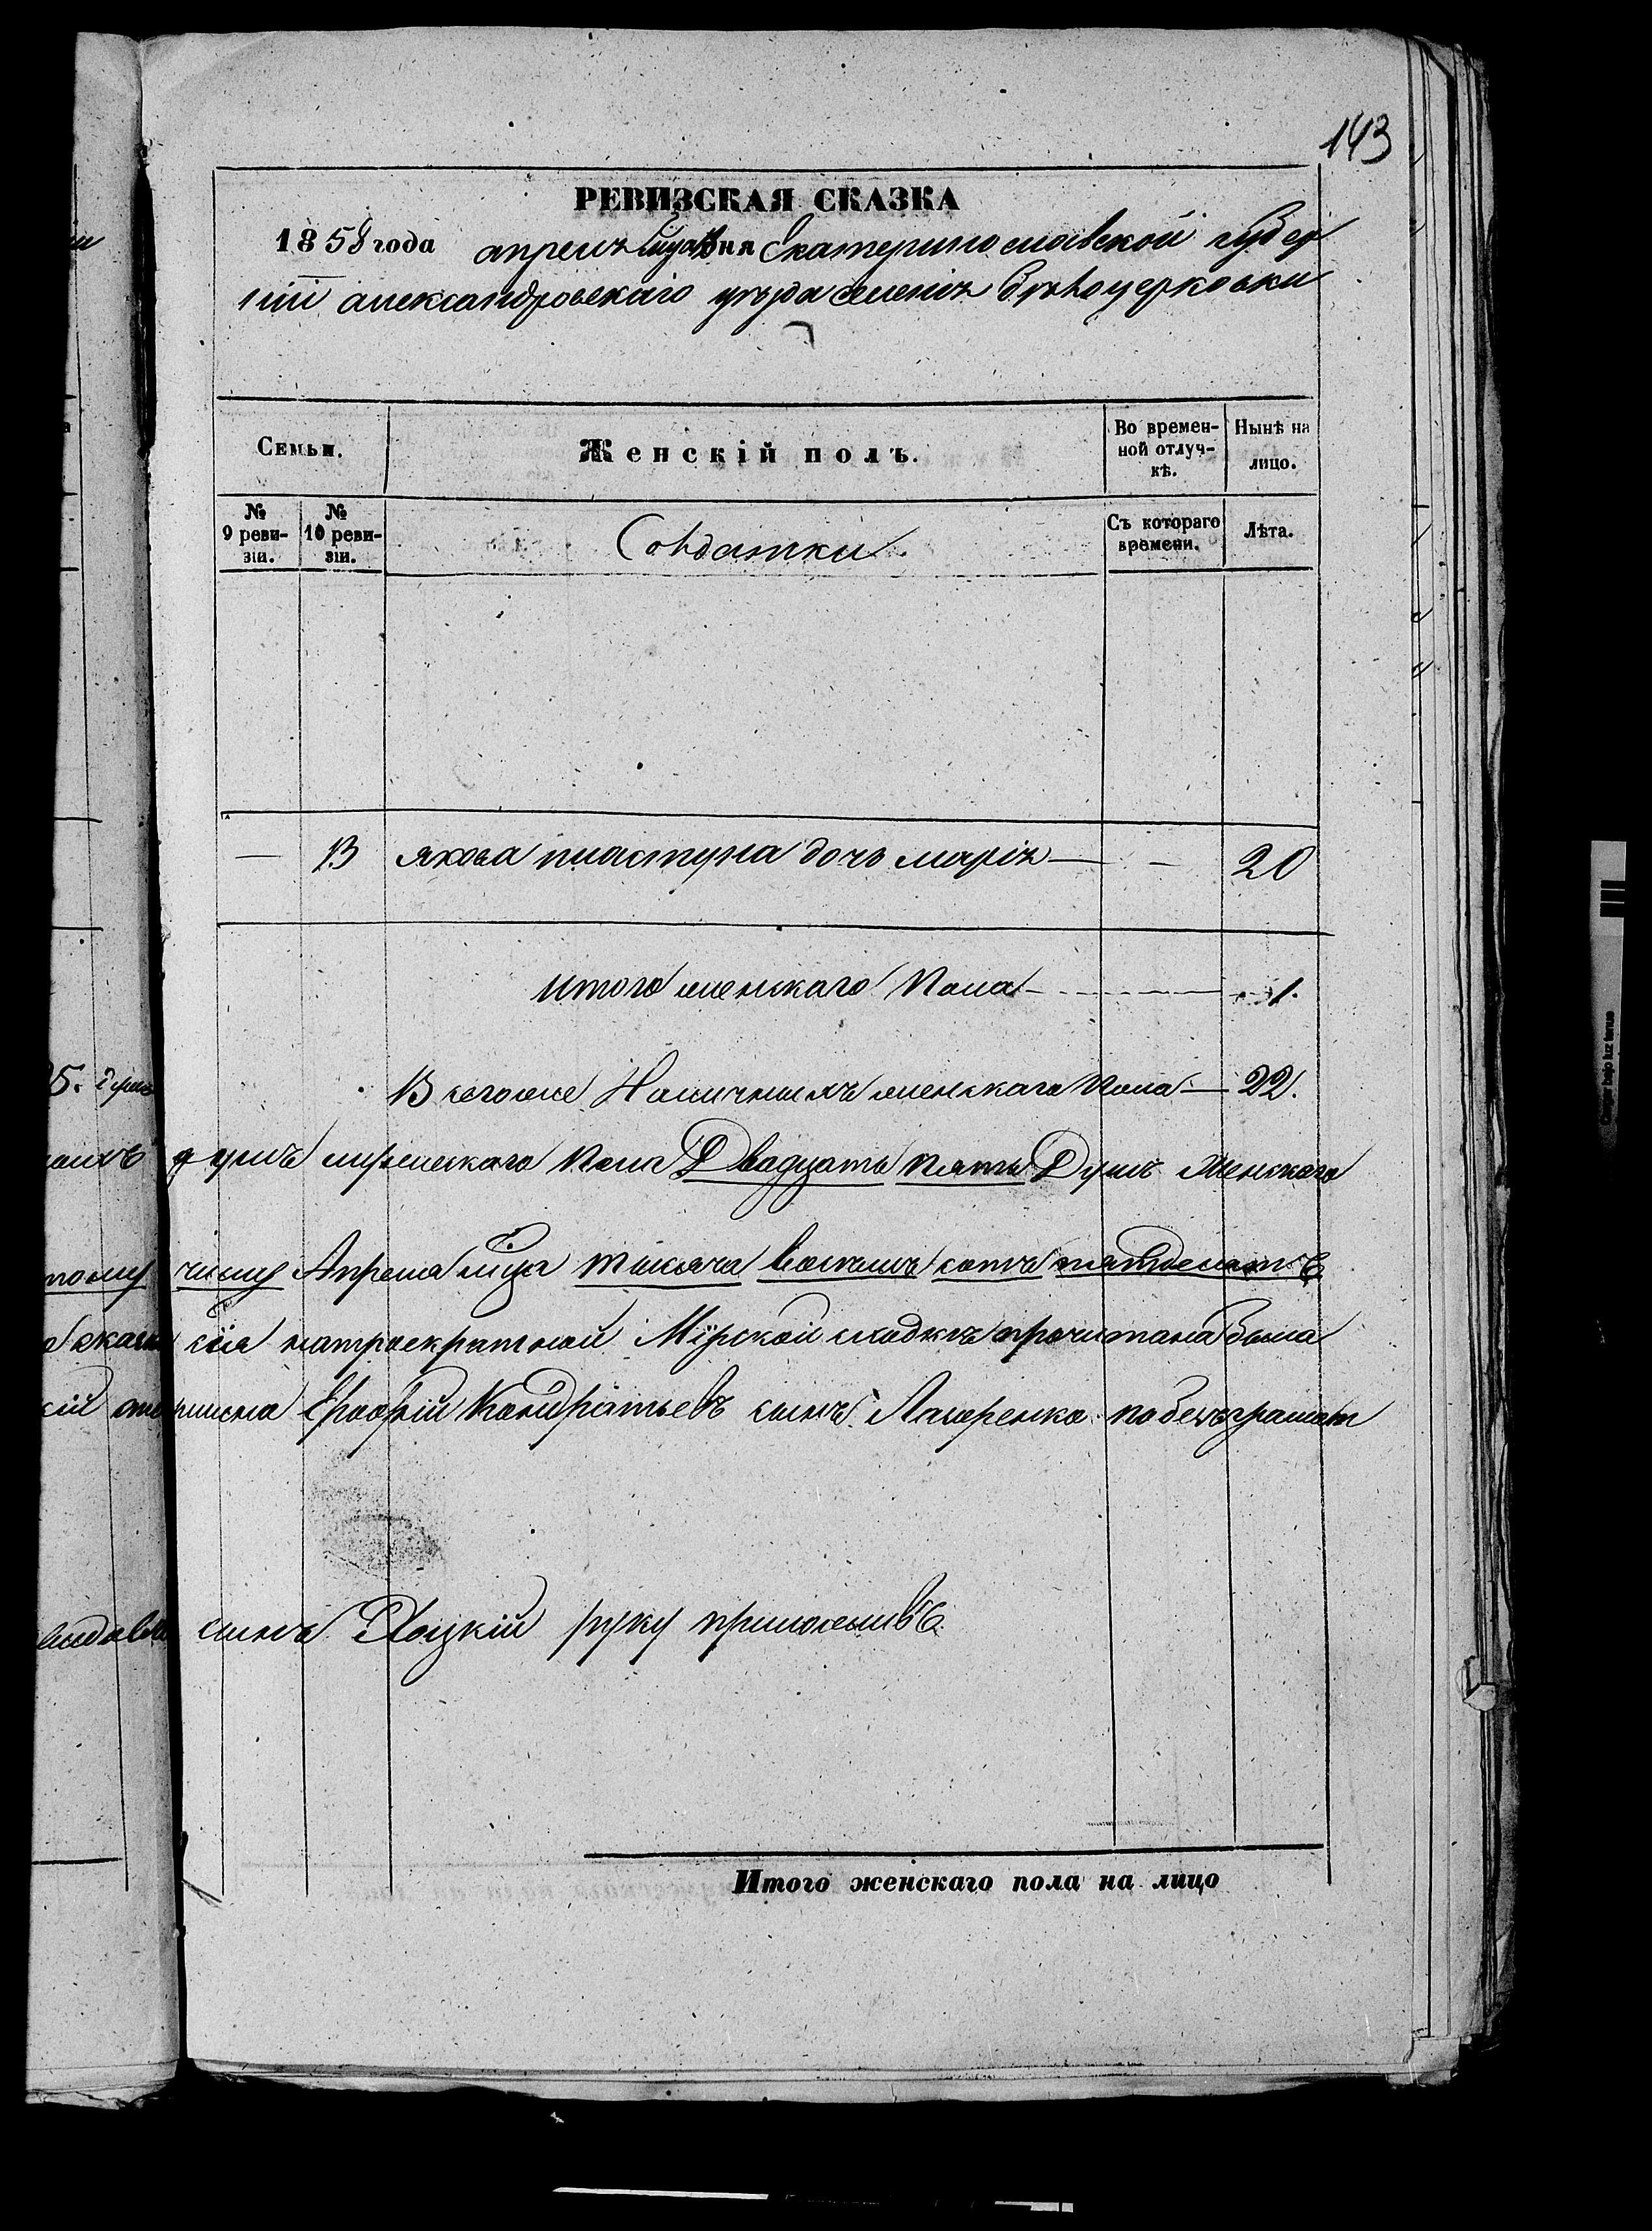 143
РЕВИЗСКАЯ СКАЗКА
1858 года апреля мца дня Екатеринославской губер
ніи александровскаго уѣзда селенія бѣлоцерковки
Семьи.
Женскій полъ.
Во времен-
ной отлуч-
кѣ.
Нынѣ на
лицо.
№
9 реви-
зіи.
№
10 реви-
зіи.
Солдатки
Съ котораго
времени.
Лѣта.
— 13 якова пластуна дочь марія — — 20
итого женскаго пола — 1.
Всего же Наличныхъ женскаго пола — 22.
душъ мужескаго пола Двадцать пять Душъ Женскаго
числу Апреля мца тысяча восемь сотъ пятдесятъ
сія натроекратной Мірской сходкѣ прочитана была
Ерофѣй Кондратьевъ сынъ Лазаренко побезграмот
сынъ руку приложивъ
Итого женскаго пола на лицо